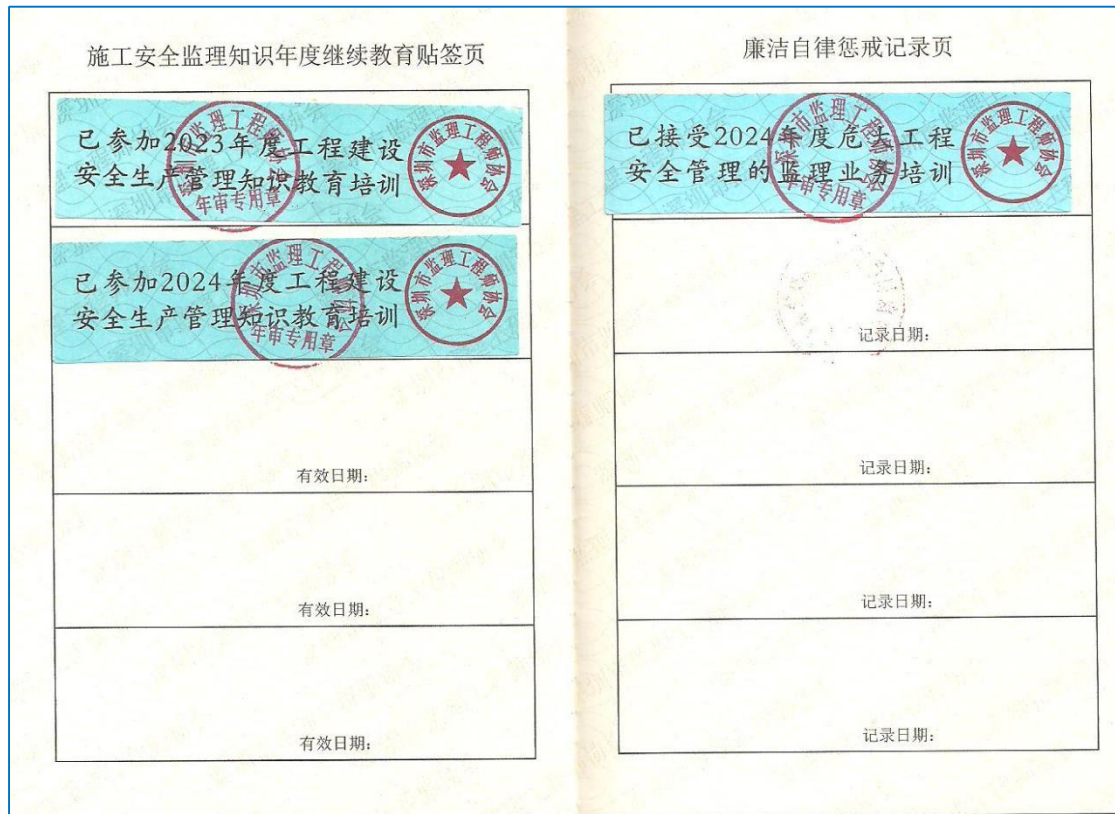 施工安全监理知识年度继续教育贴签页
已参加2023年度工程建设
安全生产管理知识教育培训
深圳市监理工程师协会
深圳市监理工程师协会
年审专用章
已参加2024年度工程建设
安全生产管理知识教育培训
深圳市监理工程师协会
深圳市监理工程师协会
年审专用章
有效日期：
有效日期：
有效日期：
廉洁自律惩戒记录页
已接受2024年度危大工程
安全管理的监理业务培训
深圳市监理工程师协会
深圳市监理工程师协会
年审专用章
记录日期：
记录日期：
记录日期：
记录日期：